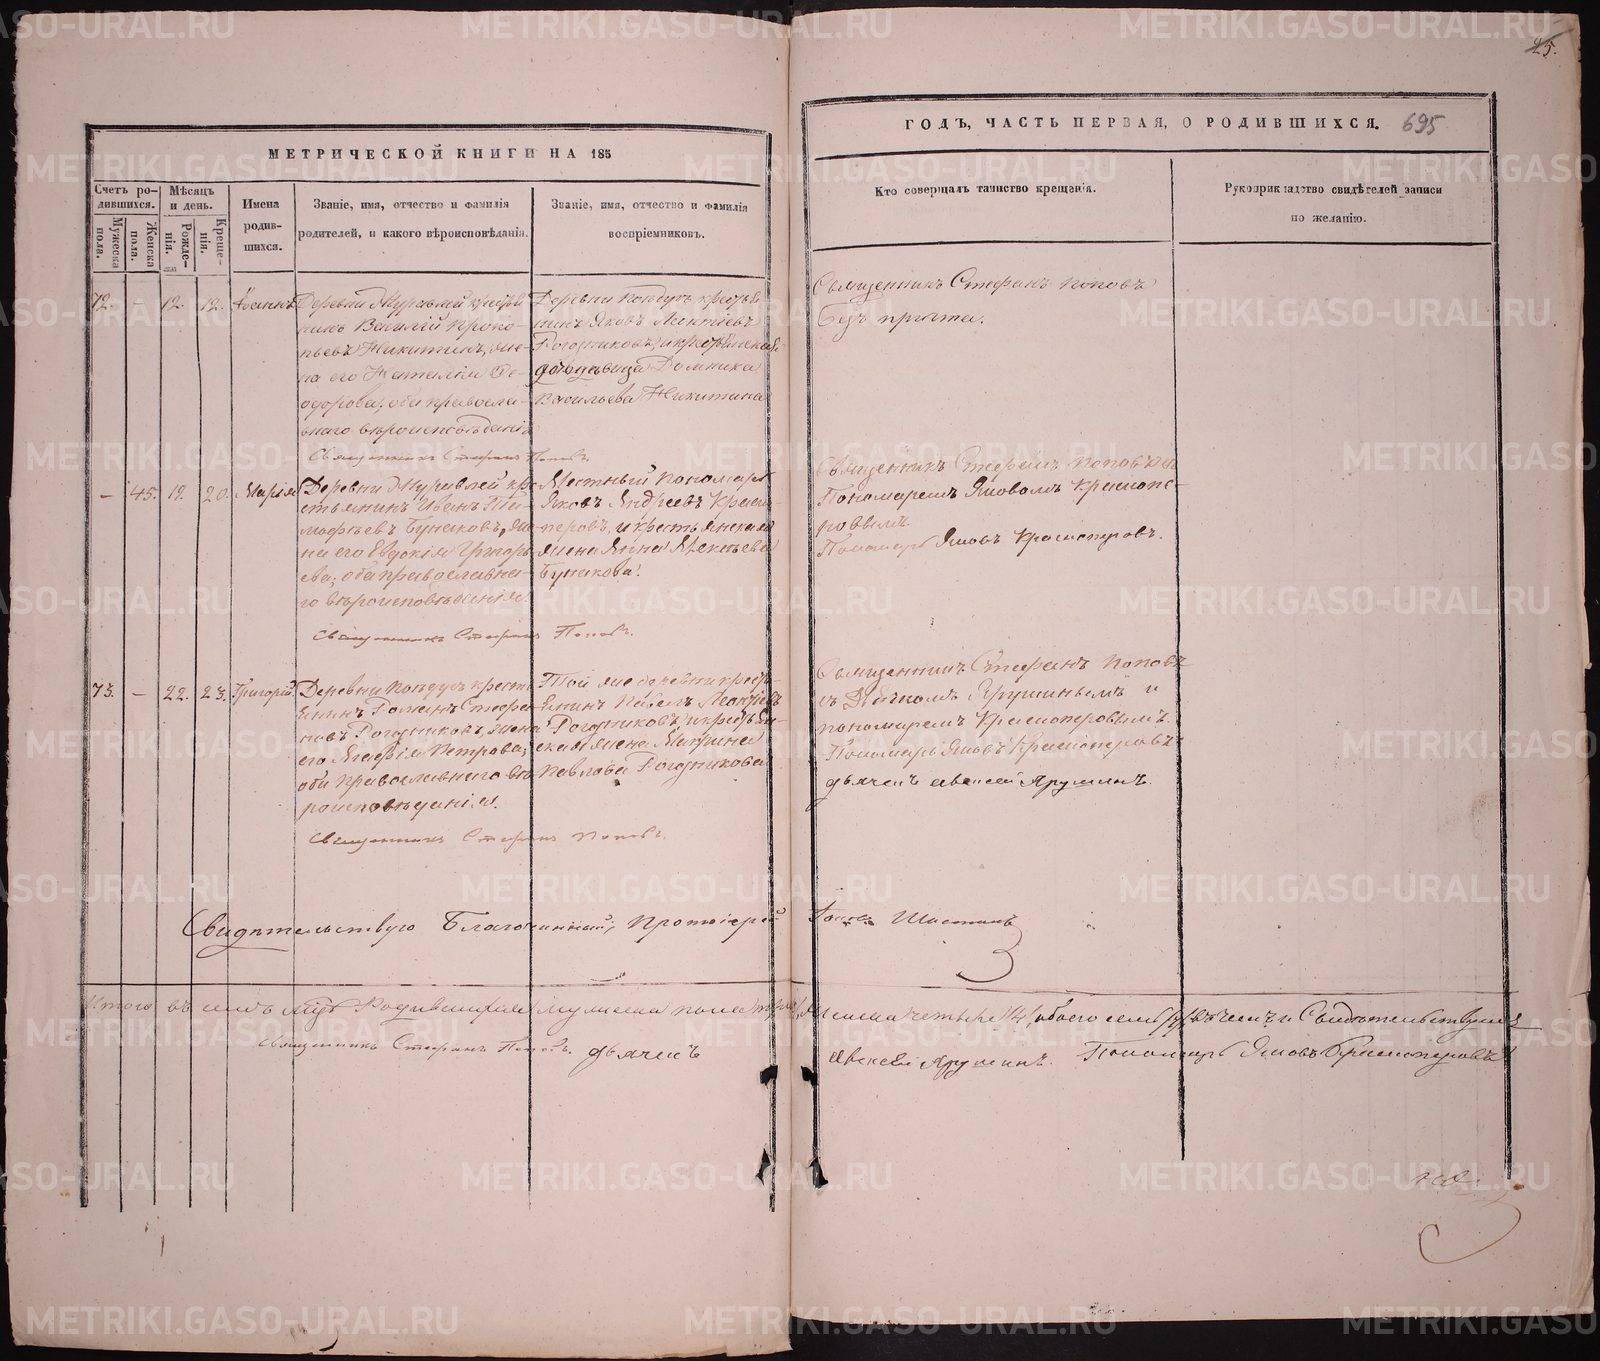 25.
МЕТРИЧЕСКОЙ КНИГИ НА 185
ГОДЪ, ЧАСТЬ ПЕРВАЯ, О РОДИВШИХСЯ. 695
Счетъ ро-
дившихся.
Мужеска
пола.
Женска
пола.
Мѣсяцъ
и день.
Рожде-
нія.
Креще-
нія.
Имена
родив-
шихся.
Званіе, имя, отчество и фамилія
родителей, и какого вѣроисповѣданія.
Званіе, имя, отчество и фамилія
воспріемниковъ.
Кто совершалъ таинство крещенія.
Рукоприкладство свидѣтелей записи
по желанію.
72. - 12. 12. Іоаннъ
Деревни Журавлей кресть
нинъ Василій Проко-
пьевъ Никитинъ, же-
на его Наталія Ѳе-
одорова; оба правосла-
внаго вѣроисповѣданія
Священникъ Стефанъ Поповъ.
крестья
нинъ Яковъ Леонтіевъ
Рогозниковъ, и крестьянская
Домника
Васильева Никитина
Священникъ Стефанъ Поповъ
- 45. 19. 20. Марія
Деревни Журавлей кре-
стьянинъ Иванъ Ти-
мофѣевъ Бунаковъ, же-
на его Евдокія Григорь
ева; оба православна-
го вѣроисповѣданія.
Священникъ Стефанъ Поповъ.
Мѣстный пономарь
Яковъ Андреевъ Красно
перовъ. и крестьянская
жена Анна Алексѣева
Бунакова.
Священникъ Стефанъ Поповъ съ
Пономаремъ Яковомъ Краснопе-
ровымъ
Пономарь Яковъ Красноперовъ.
73. - 22. 23. Григорій
крестья
янинъ Романъ Стефа-
новъ Рогозниковъ, жена
его Марія Петрова;
оба православнаго вѣ-
роисповѣданія.
Священникъ Стефанъ Поповъ.
Той же деревни кресть-
янинъ Павелъ Леонтіевъ
Рогозниковъ, и крестьян-
ская жена Макрина
Павлова Рогозникова
Священникъ Стефанъ Поповъ
съ Дьячкомъ Ярушинымъ и
пономаремъ Красноперовымъ.
Пономарь Яковъ Красноперовъ
дьячекъ Алексей Ярушинъ.
Свидѣтельствую Благочинный, Протоіерей
Итого въ семъ м-цѣ Родившихся мужеска пола три, Женска четыре /4/, обоего семь /7/, въ чемъ и Свидѣтельствуемъ
Священникъ Стефанъ Поповъ. дьячекъ Алексей Ярушинъ. Пономарь Яковъ Красноперовъ
METRIKI.GASO-URAL.RU